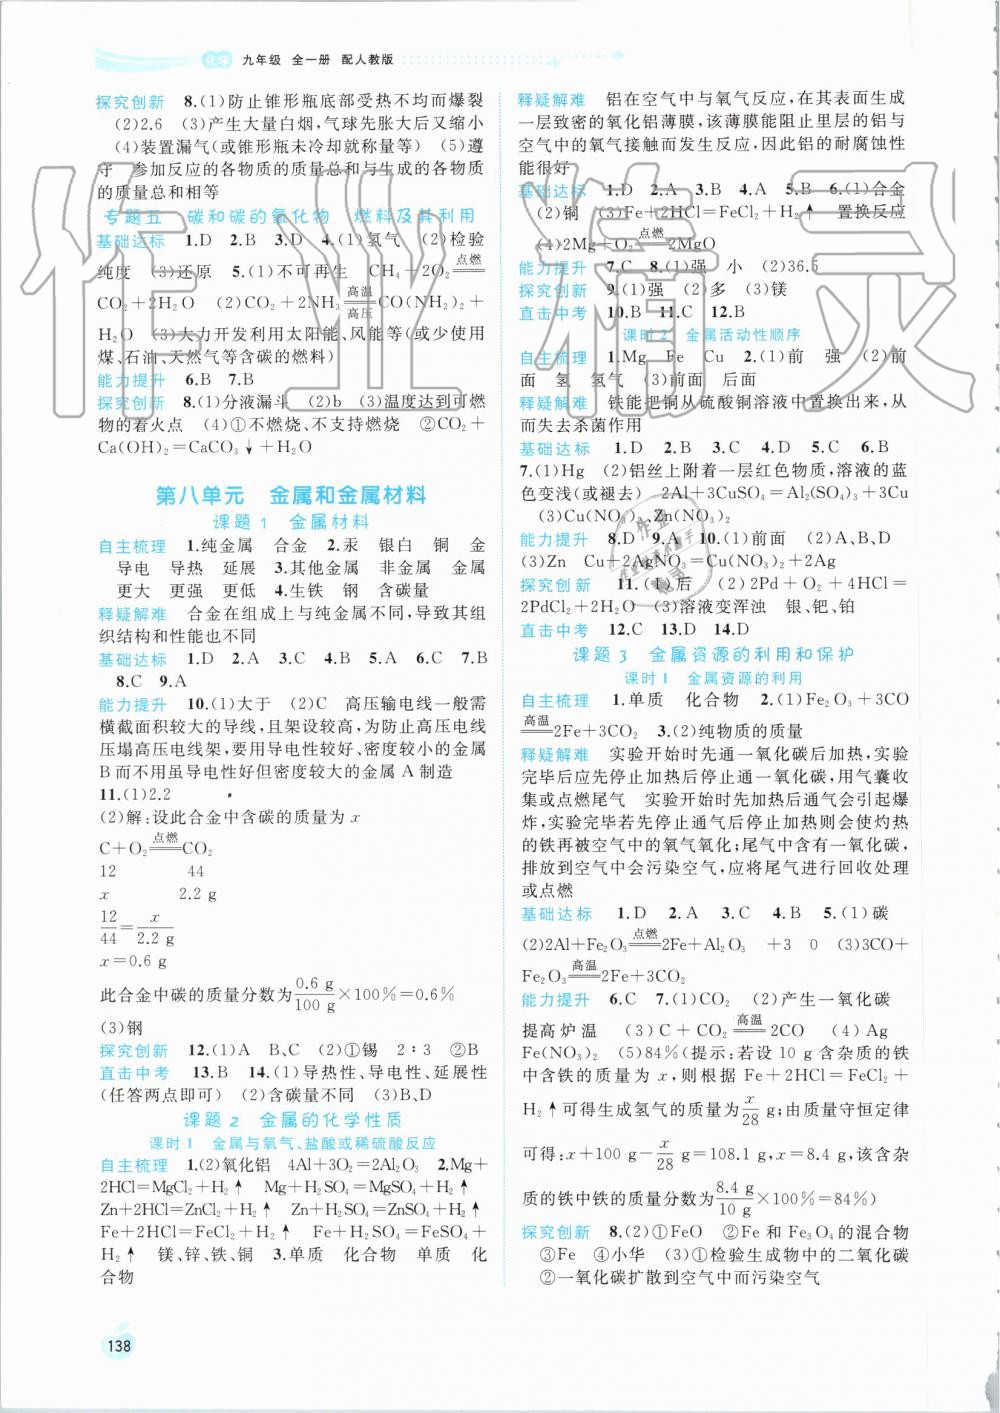 化学 九年级 全一册 配人教版
探究创新 8.(1)防止锥形瓶底部受热不均而爆裂
(2)2.6 (3)产生大量白烟,气球先胀大后又缩小
(4)装置漏气(或锥形瓶未冷却就称量等) (5)遵
守 参加反应的各物质的质量总和与生成的各物质
的质量总和相等
专题五 碳和碳的氧化物 燃料及其利用
基础达标 1.D 2.B 3.D 4.(1)氢气 (2)检验
纯度 (3)还原 5.(1)不可再生 CH₄+2O₂ 点燃══
CO₂+2H₂O (2)CO₂+2NH₃ 高温══高压 CO(NH₂)₂+
H₂O (3)大力开发利用太阳能、风能等(或少使用
煤、石油、天然气等含碳的燃料)
能力提升 6.B 7.B
探究创新 8.(1)分液漏斗 (2)b (3)温度达到可燃
物的着火点 (4)①不燃烧、不支持燃烧 ②CO₂+
Ca(OH)₂=CaCO₃↓+H₂O
第八单元 金属和金属材料
课题1 金属材料
自主梳理 1.纯金属 合金 2.汞 银白 铜 金
导电 导热 延展 3.其他金属 非金属 金属
更大 更强 更低 4.生铁 钢 含碳量
释疑解难 合金在组成上与纯金属不同,导致其组
织结构和性能也不同
基础达标 1.D 2.A 3.C 4.B 5.A 6.C 7.B
8.C 9.A
能力提升 10.(1)大于 (2)C 高压输电线一般需
横截面积较大的导线,且架设较高,为防止高压电线
压塌高压电线架,要用导电性较好、密度较小的金属
B而不用虽导电性好但密度较大的金属A制造
11.(1)2.2
(2)解:设此合金中含碳的质量为x
C+O₂ 点燃══ CO₂
12 44
x 2.2 g
12/44=x/2.2 g
x=0.6 g
此合金中碳的质量分数为0.6 g/100 g×100%=0.6%
(3)钢
探究创新 12.(1)A B、C (2)①锡 2∶3 ②B
直击中考 13.B 14.(1)导热性、导电性、延展性
(任答两点即可) (2)含碳量不同 (3)B、D
课题2 金属的化学性质
课时1 金属与氧气、盐酸或稀硫酸反应
自主梳理 1.(2)氧化铝 4Al+3O₂=2Al₂O₃ 2.Mg+
2HCl=MgCl₂+H₂↑ Mg+H₂SO₄=MgSO₄+H₂↑
Zn+2HCl=ZnCl₂+H₂↑ Zn+H₂SO₄=ZnSO₄+H₂↑
Fe+2HCl=FeCl₂+H₂↑ Fe+H₂SO₄=FeSO₄+
H₂↑ 镁、锌、铁、铜 3.单质 化合物 单质 化
合物
释疑解难 铝在空气中与氧气反应,在其表面生成
一层致密的氧化铝薄膜,该薄膜能阻止里层的铝与
空气中的氧气接触而发生反应,因此铝的耐腐蚀性
能很好
基础达标 1.D 2.A 3.B 4.A 5.B 6.(1)合金
(2)铜 (3)Fe+2HCl=FeCl₂+H₂↑ 置换反应
(4)2Mg+O₂ 点燃══ 2MgO
能力提升 7.C 8.(1)强 小 (2)36.5
探究创新 9.(1)强 (2)多 (3)镁
直击中考 10.B 11.C 12.B
课时2 金属活动性顺序
自主梳理 1.Mg Fe Cu 2.(1)前 强 (2)前
面 氢 氢气 (3)前面 后面
释疑解难 铁能把铜从硫酸铜溶液中置换出来,从
而失去杀菌作用
基础达标 1.D 2.B 3.C 4.D 5.C 6.B
7.(1)Hg (2)铝丝上附着一层红色物质,溶液的蓝
色变浅(或褪去) 2Al+3CuSO₄=Al₂(SO₄)₃+3Cu
(3)Cu(NO₃)₂、Zn(NO₃)₂
能力提升 8.D 9.A 10.(1)前面 (2)A、B、D
(3)Zn Cu+2AgNO₃=Cu(NO₃)₂+2Ag
探究创新 11.(1)后 (2)2Pd+O₂+4HCl=
2PdCl₂+2H₂O (3)溶液变浑浊 银、钯、铂
直击中考 12.C 13.D 14.D
课题3 金属资源的利用和保护
课时1 金属资源的利用
自主梳理 1.单质 化合物 2.(1)Fe₂O₃+3CO
高温══ 2Fe+3CO₂ 3.(2)纯物质的质量
释疑解难 实验开始时先通一氧化碳后加热,实验
完毕后应先停止加热后停止通一氧化碳,用气囊收
集或点燃尾气 实验开始时先加热后通气会引起爆
炸,实验完毕若先停止通气后停止加热则会使灼热
的铁再被空气中的氧气氧化;尾气中含有一氧化碳,
排放到空气中会污染空气,应将尾气进行回收处理
或点燃
基础达标 1.D 2.A 3.C 4.B 5.(1)碳
(2)2Al+Fe₂O₃ 点燃══ 2Fe+Al₂O₃ +3 0 (3)3CO+
Fe₂O₃ 高温══ 2Fe+3CO₂
能力提升 6.C 7.(1)CO₂ (2)产生一氧化碳
提高炉温 (3)C+CO₂ 高温══ 2CO (4)Ag
Fe(NO₃)₂ (5)84%(提示:若设10 g含杂质的铁
中含铁的质量为x,则根据Fe+2HCl=FeCl₂+
H₂↑可得生成氢气的质量为x/28 g;由质量守恒定律
可得:x+100 g-x/28 g=108.1 g,x=8.4 g,该含杂
质的铁中铁的质量分数为8.4 g/10 g×100%=84%)
探究创新 8.(2)①FeO ②Fe和Fe₃O₄的混合物
③Fe ④小华 (3)①检验生成物中的二氧化碳
②一氧化碳扩散到空气中而污染空气
138
作业精灵